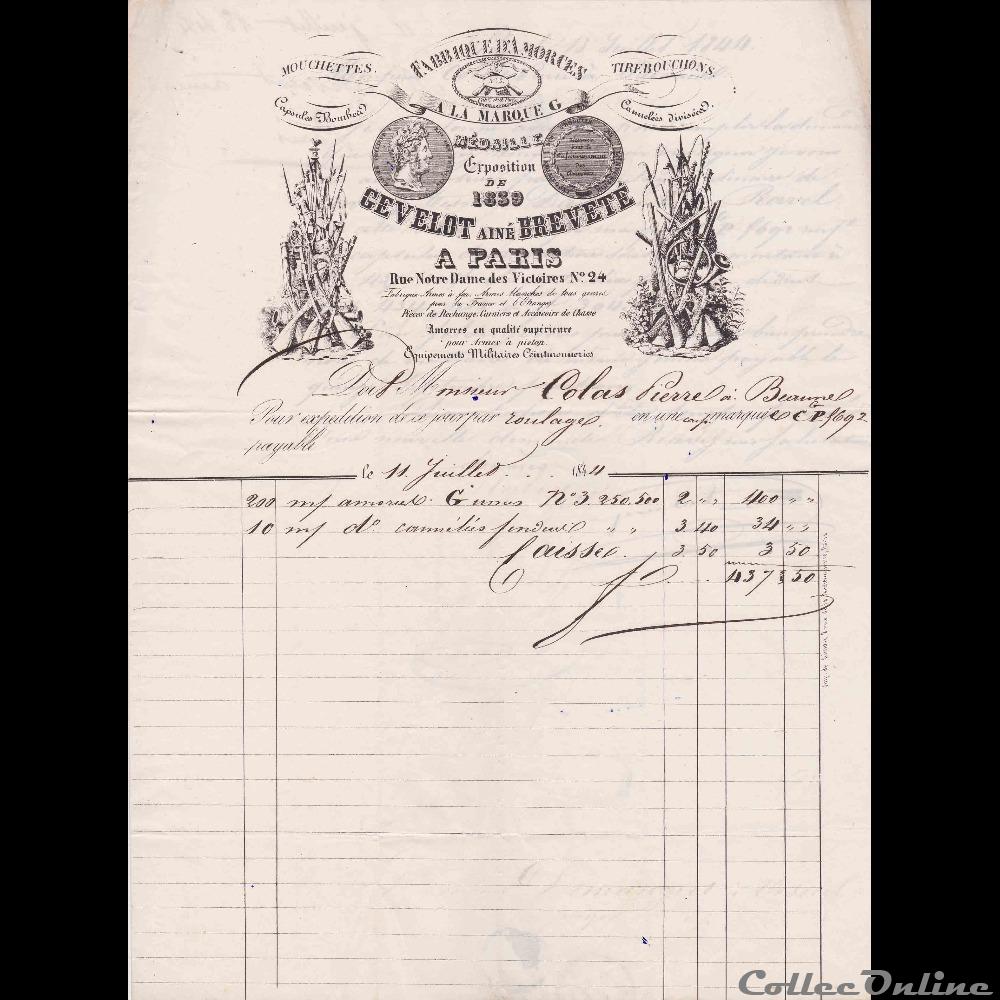 MOUCHETTES.
FABRIQUE D'AMORCES
TIREBOUCHONS.
Capsules Bombées
A LA MARQUE G
Cannelées divisées.
MÉDAILLE
Exposition
DE
1839
GEVELOT AINÉ BREVETÉ
A PARIS
Rue Notre Dame des Victoires No. 24
Fabrique Armes à feu, Armes blanches de tous genres
pour la France et l'Étranger
Pièces de Rechange, Carniers et Accessoirs de Chasse
Amorces en qualité supérieure
pour Armes à piston.
Équipements Militaires Ceinturonneries
Doit Monsieur Colas Pierre à Beaune
Pour expédition de ce jour par roulage. en une marquée C P. 1692
payable
le 11 Juillet 1844
200 m/ amorces G No 3. 250,500 2 " " 400 " "
10 m/ do cannelées fendues " " 3 40 34 " "
Caisse. 3 50 3 50
437 50
CollecOnline